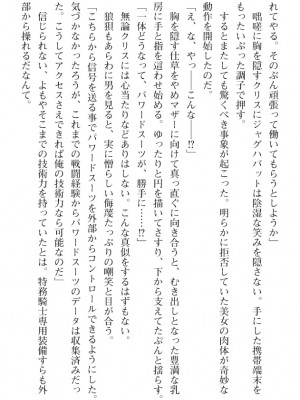 れてやる。そのぶん頑張って働いてもらうとしようか」
咄嗟に胸を隠すクリスにジャグハバットは陰湿な笑みを隠さない。手にした携帯端末を
もったいぶった調子で押す。
するとまたしても驚くべき事象が起こった。明らかに拒否していた美女の肉体が奇妙な
動作を開始したのだ。
「え、な、やっ……こんな――!?」
胸を隠す仕草をやめマザーに向けて真っ直ぐに向き合うと、むき出しとなった豊満な乳
房に手と指を這わせ始める。ゆったりと円に描いてさすり、下から支えてたぷんと揺らす。
「一体どうなって、パワードスーツが、勝手に……!?」
無論クリスには心当たりなどありはしない。こんな真似をするはずもない。
狼狽もあらわに男を見ると、実に憎らしい侮蔑たっぷりの嘲笑と目が合う。
「こちらから信号を送る事でパワードスーツを外部からコントロールできるようにした。
気づかなかったろうが、これまでの戦闘経験からパワードスーツのデータは収集済みだっ
た。こうしてアクセスさえできれば俺の技術力なら可能なのだ」
信じられない、よもやそこまでの技術力を持っていたとは。特務騎士専用装備すらも外
部から操れるだなんて。